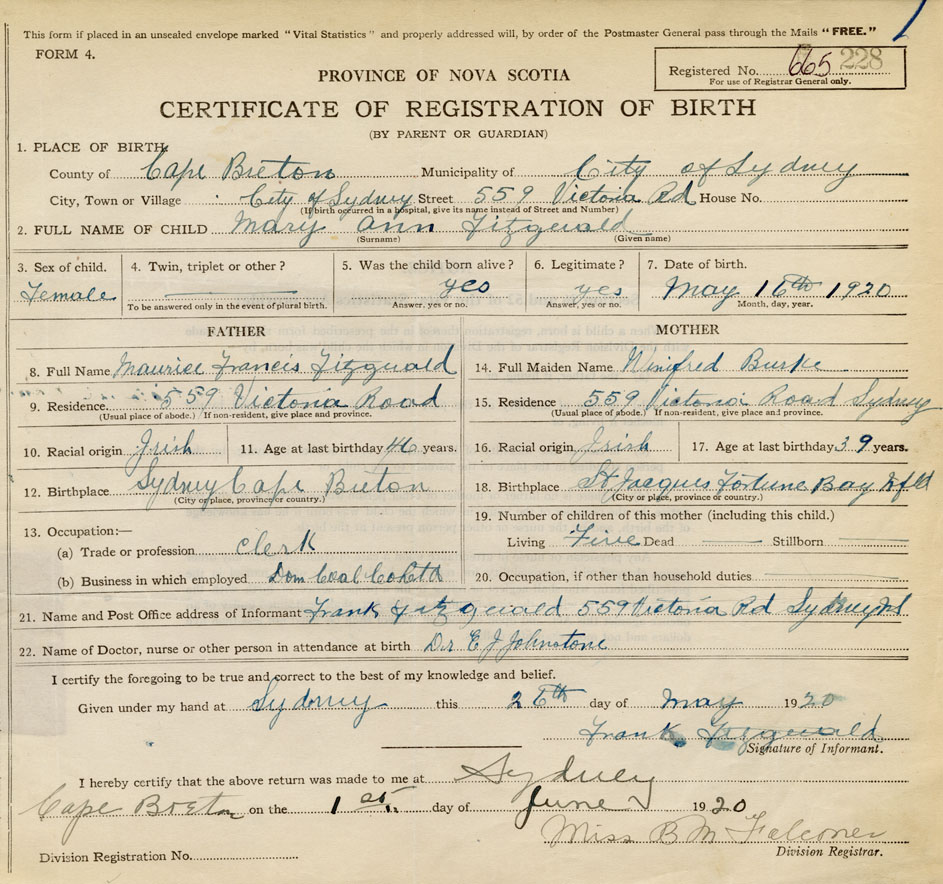 This form if placed in an unsealed envelope marked "Vital Statistics" and properly addressed will, by order of the Postmaster General pass through the Mails "FREE."
FORM 4.
Registered No. 665 228
For use of Registrar General only.
PROVINCE OF NOVA SCOTIA
CERTIFICATE OF REGISTRATION OF BIRTH
(BY PARENT OR GUARDIAN)
1. PLACE OF BIRTH.
County of Cape Breton Municipality of City of Sydney
City, Town or Village City of Sydney Street 559 Victoria Rd House No.
(If birth occurred in a hospital, give its name instead of Street and Number)
2. FULL NAME OF CHILD Mary Ann Fitzgerald
(Surname) (Given name)
3. Sex of child. 4. Twin, triplet or other? 5. Was the child born alive? 6. Legitimate? 7. Date of birth.
Female yes yes May 16th 1920
To be answered only in the event of plural birth. Answer, yes or no. Answer, yes or no. Month, day, year.
FATHER MOTHER
8. Full Name Maurice Francis Fitzgerald 14. Full Maiden Name Winifred Burke
9. Residence. 559 Victoria Road 15. Residence 559 Victoria Road Sydney
(Usual place of abode.) If non-resident, give place and province. (Usual place of abode.) If non-resident, give place and province.
10. Racial origin Irish 11. Age at last birthday 46 years. 16. Racial origin Irish 17. Age at last birthday 39 years.
12. Birthplace Sydney Cape Breton 18. Birthplace St Jacques Fortune Bay Nfld
(City or place, province or country.) (City or place, province or country.)
13. Occupation:— 19. Number of children of this mother (including this child.)
(a) Trade or profession clerk Living Five Dead Stillborn
(b) Business in which employed Dom Coal Co Ltd 20. Occupation, if other than household duties
21. Name and Post Office address of Informant Frank Fitzgerald 559 Victoria Rd Sydney NS
22. Name of Doctor, nurse or other person in attendance at birth Dr. E J Johnstone
I certify the foregoing to be true and correct to the best of my knowledge and belief.
Given under my hand at Sydney this 26th day of May 1920
Frank Fitzgerald
Signature of Informant.
I hereby certify that the above return was made to me at Sydney
Cape Breton on the 1st. day of June 1920
Miss B M Falconer
Division Registration No. Division Registrar.